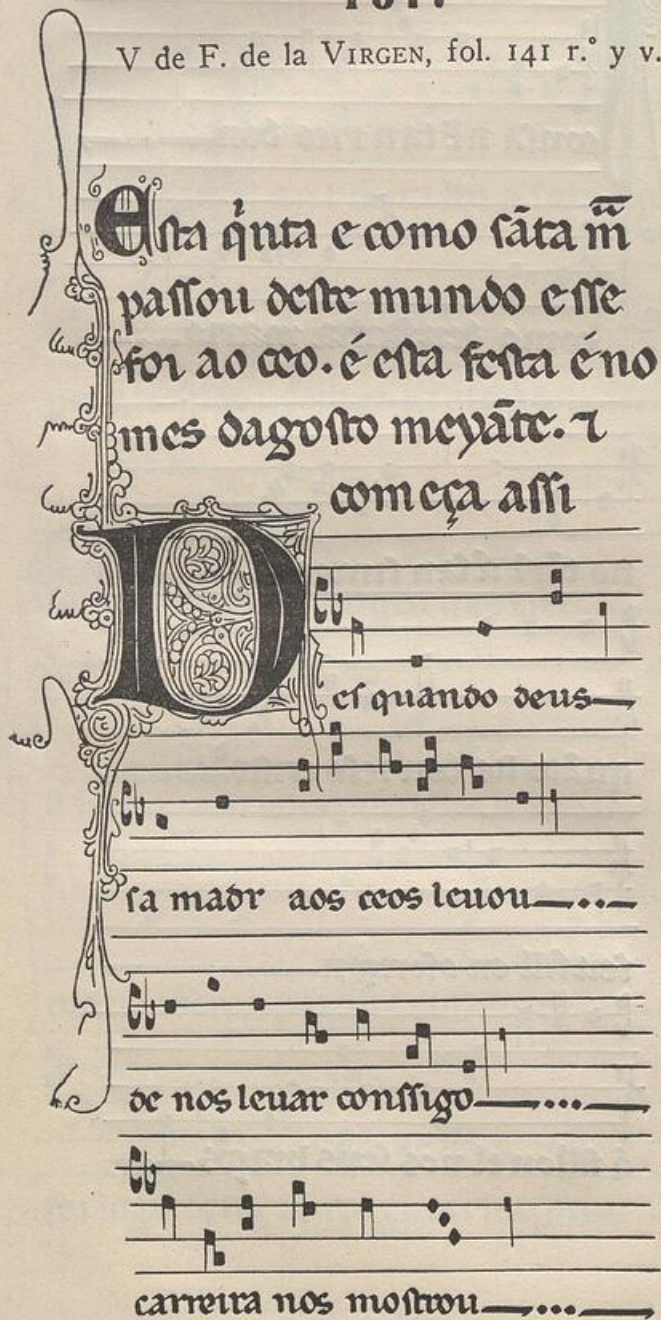 V de F. de la VIRGEN, fol. 141 r.º y v.
Esta q̇nta e como sāta m̄
passou deste mundo e sse
foi ao ceo. é esta festa é no
mes dagosto meyāte. ⁊
começa assi
Des quando deus
sa madr aos ceos leuou
de nos leuar conssigo
carreira nos mostrou